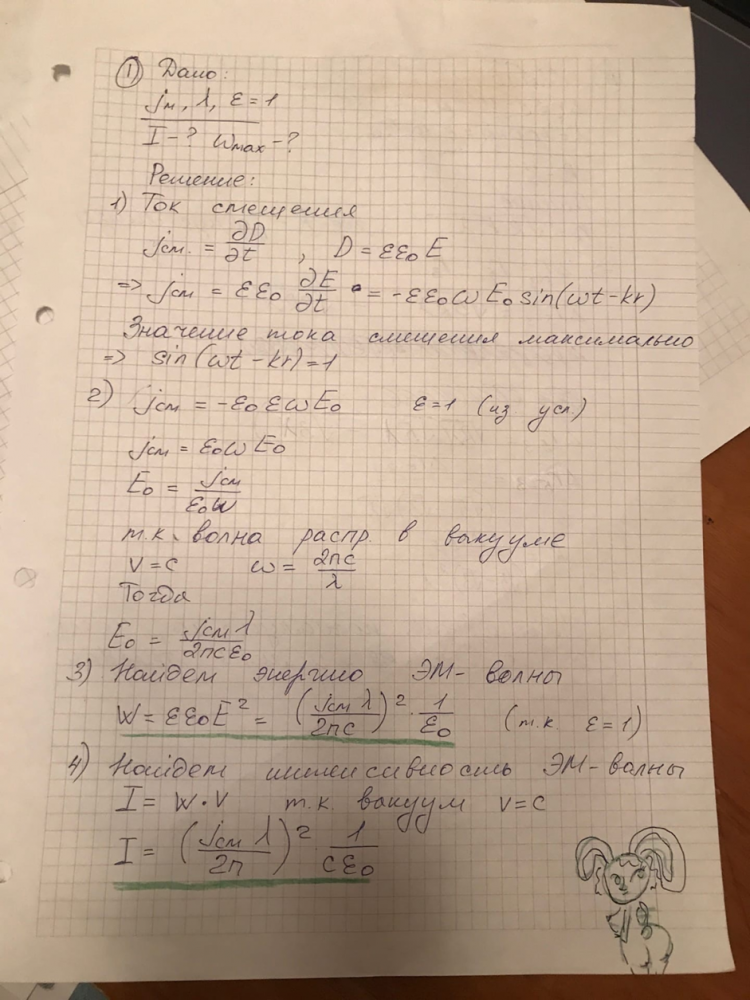 ① Дано:
jм, λ, ε = 1
I - ? wmax - ?
Решение:
1) Ток смещения
jсм. = ∂D/∂t , D = εε₀E
=> jсм = εε₀ ∂E/∂t = -εε₀ωE₀sin(ωt-kr)
Значение тока смещения максимально
=> sin(ωt-kr)=1
2) jсм = -ε₀εωE₀ ε=1 (из усл.)
jсм = ε₀ωE₀
E₀ = jсм/ε₀ω
т.к. волна распр. в вакууме
v = c ω = 2πc/λ
Тогда
E₀ = jсм λ/2πcε₀
3) Найдем энергию ЭМ-волны
W = εε₀E² = (jсм λ/2πc)² · 1/ε₀ (т.к. ε=1)
4) Найдем интенсивность ЭМ-волны
I = W·V т.к. вакуум v=c
I = (jсм λ/2π)² 1/cε₀